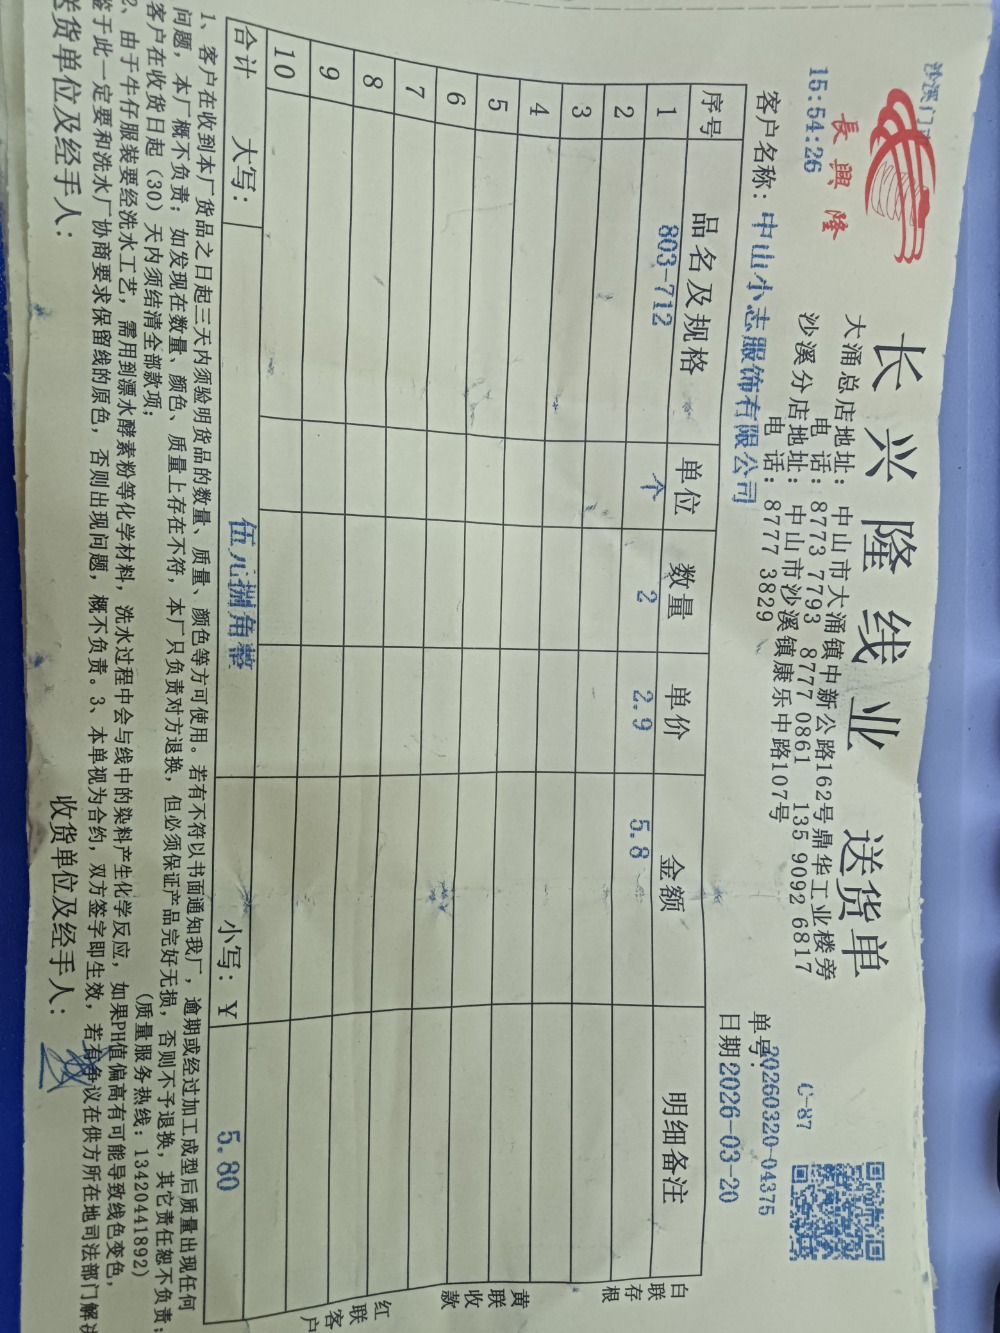 沙溪门
15:54:26
長興隆
长兴隆线业 送货单
大涌总店地址：中山市大涌镇中新公路162号鼎华工业楼旁
电 话：8773 7793 8777 0861 135 9092 6817
沙溪分店地址：中山市沙溪镇康乐中路107号
电 话：8777 3829
C-87
单号：20260320-04375
客户名称：中山小志服饰有限公司
日期2026-03-20
序号 品名及规格 单位 数量 单价 金额 明细备注
1 803-712 个 2 2.9 5.8
2
3
4
5
6
7
8
9
10
合计 大写： 伍元捌角整 小写：￥ 5.80
白联存根
黄联收款
红联客户
1、客户在收到本厂货品之日起三天内须验明货品的数量、质量、颜色等方可使用。若有不符以书面通知我厂，逾期或经过加工成型后质量出现任何
问题，本厂概不负责；如发现在数量、颜色、质量上存在不符，本厂只负责对方退换，但必须保证产品完好无损，否则不予退换，其它责任恕不负责；
客户在收货日起（30）天内须结清全部款项；
(质量服务热线：13420441892)
2、由于牛仔服装要经洗水工艺，需用到漂水酵素粉等化学材料，洗水过程中会与线中的染料产生化学反应，如果PH值偏高有可能导致线色变色，
鉴于此一定要和洗水厂协商要求保留线的原色，否则出现问题，概不负责。3、本单视为合约，双方签字即生效，若有争议在供方所在地司法部门解决
送货单位及经手人： 收货单位及经手人：